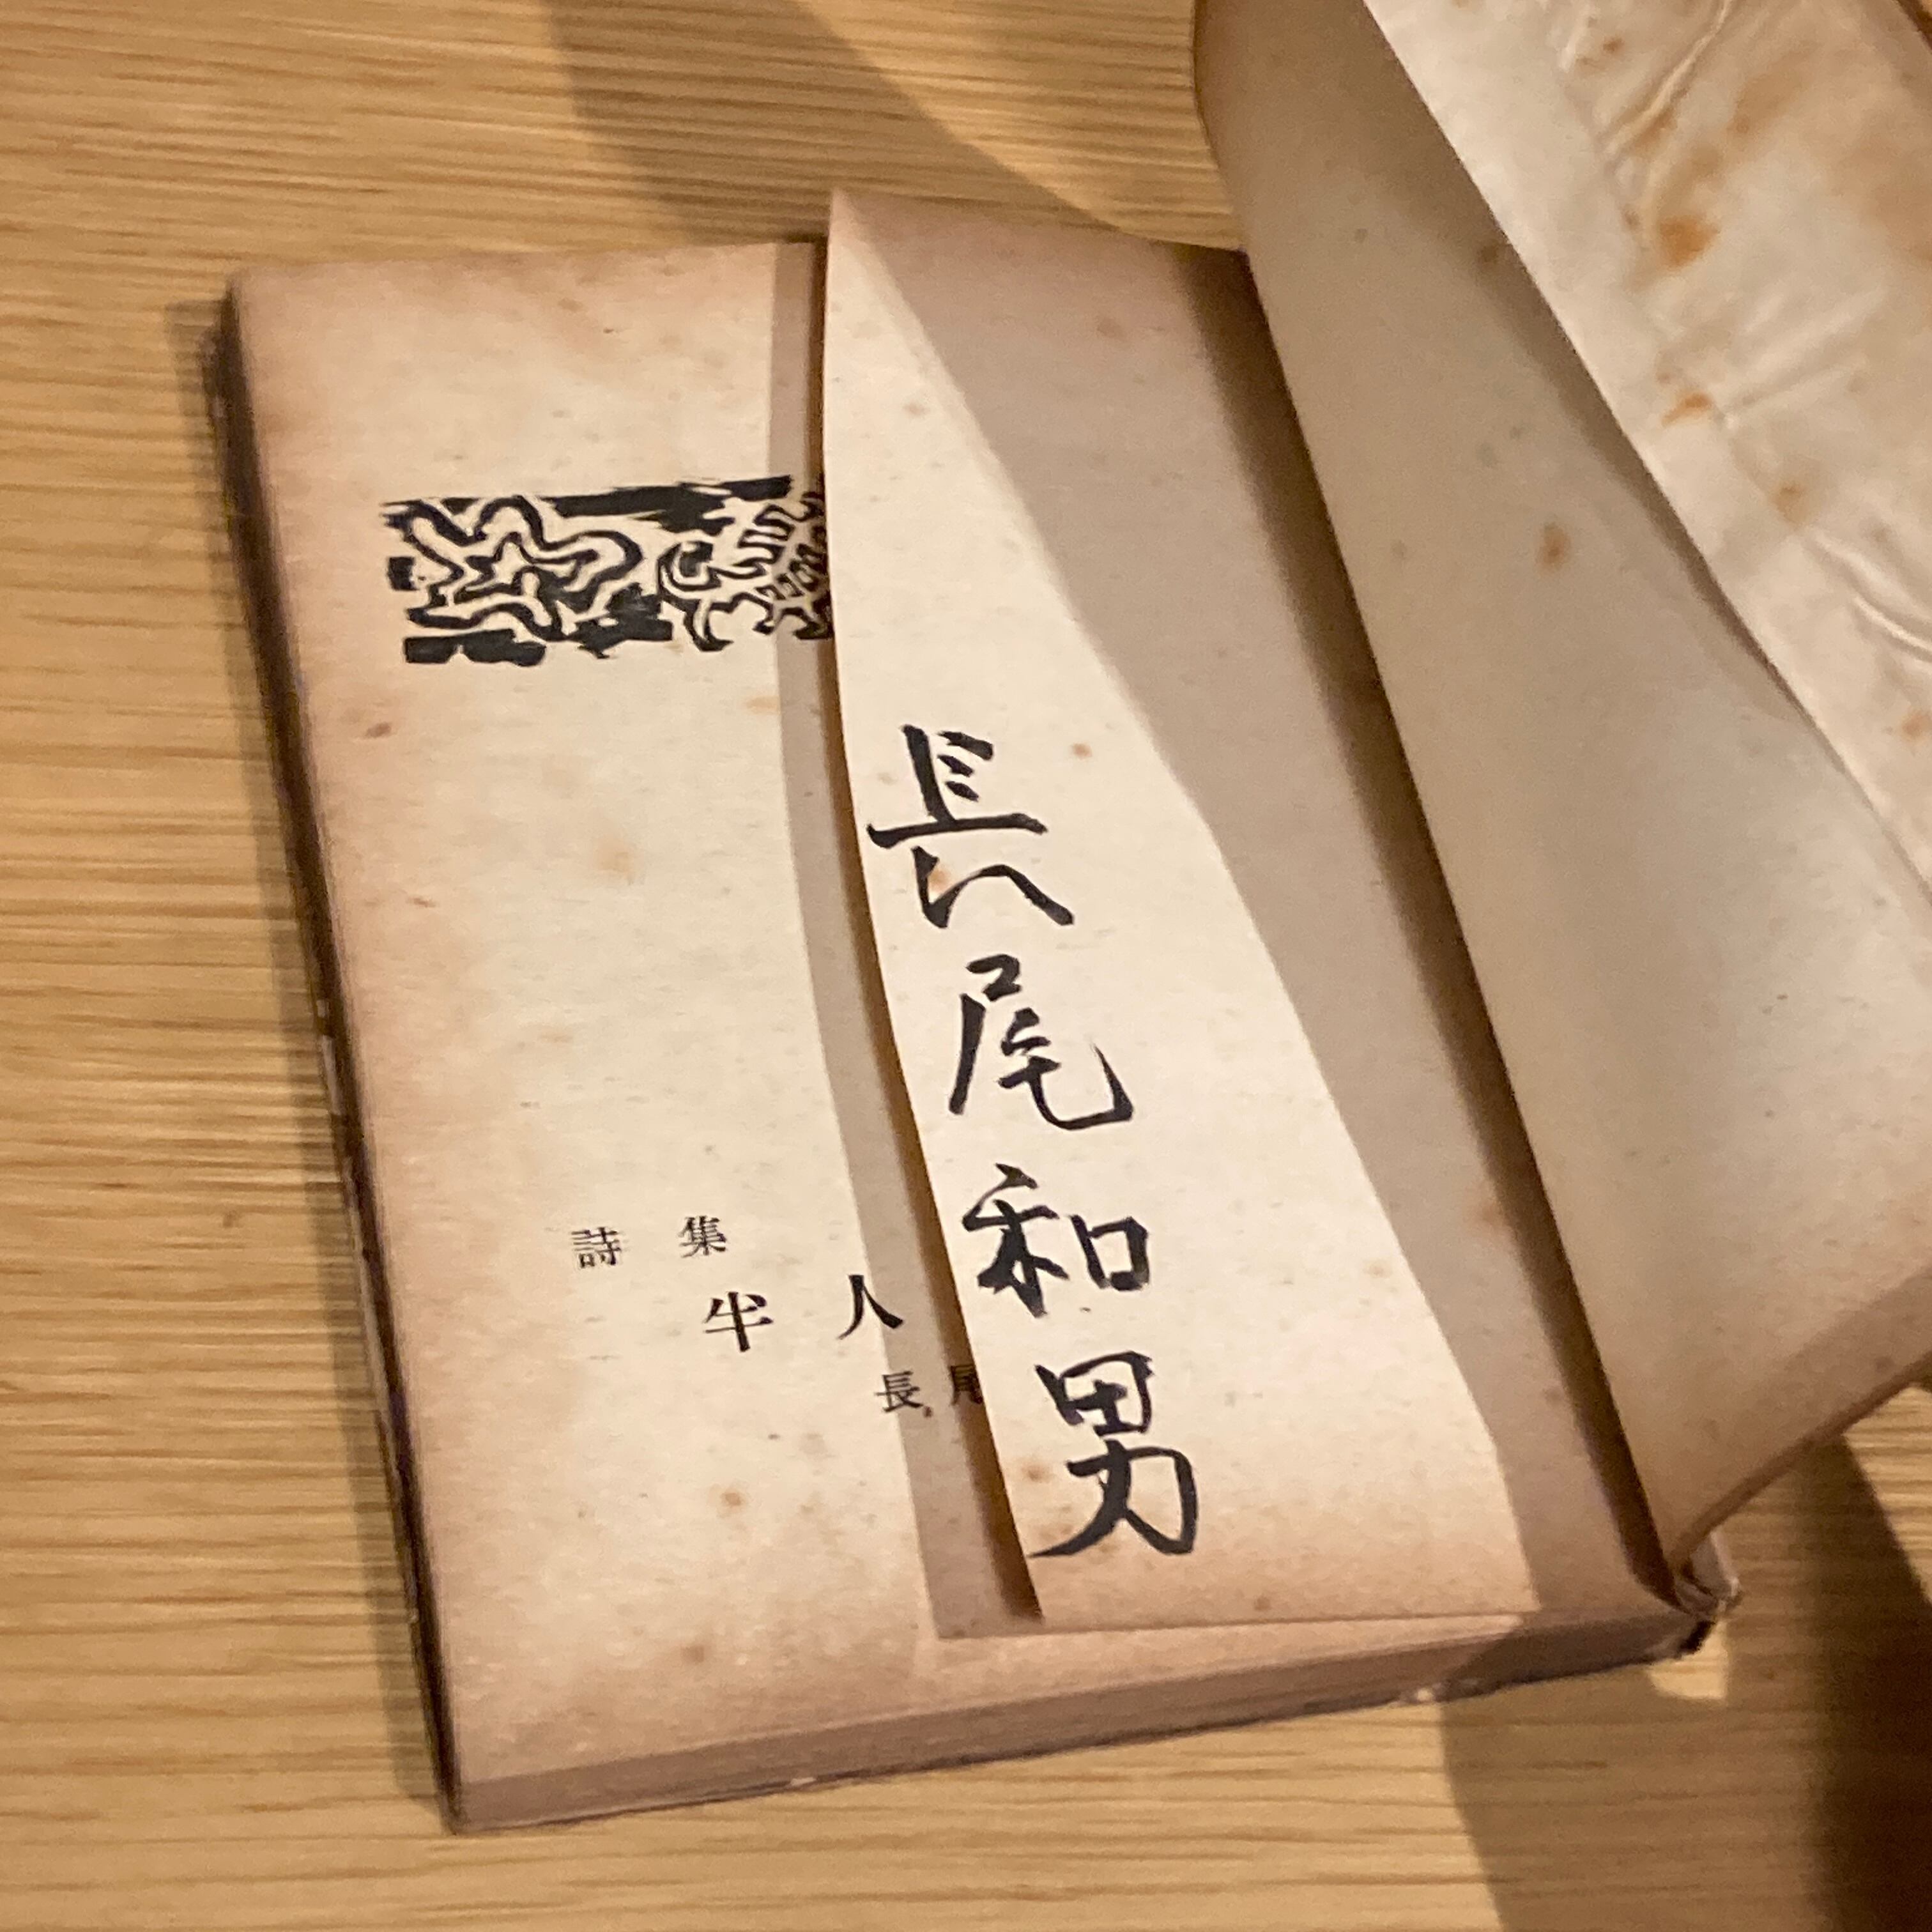 長尾和男
詩集
半人
長尾